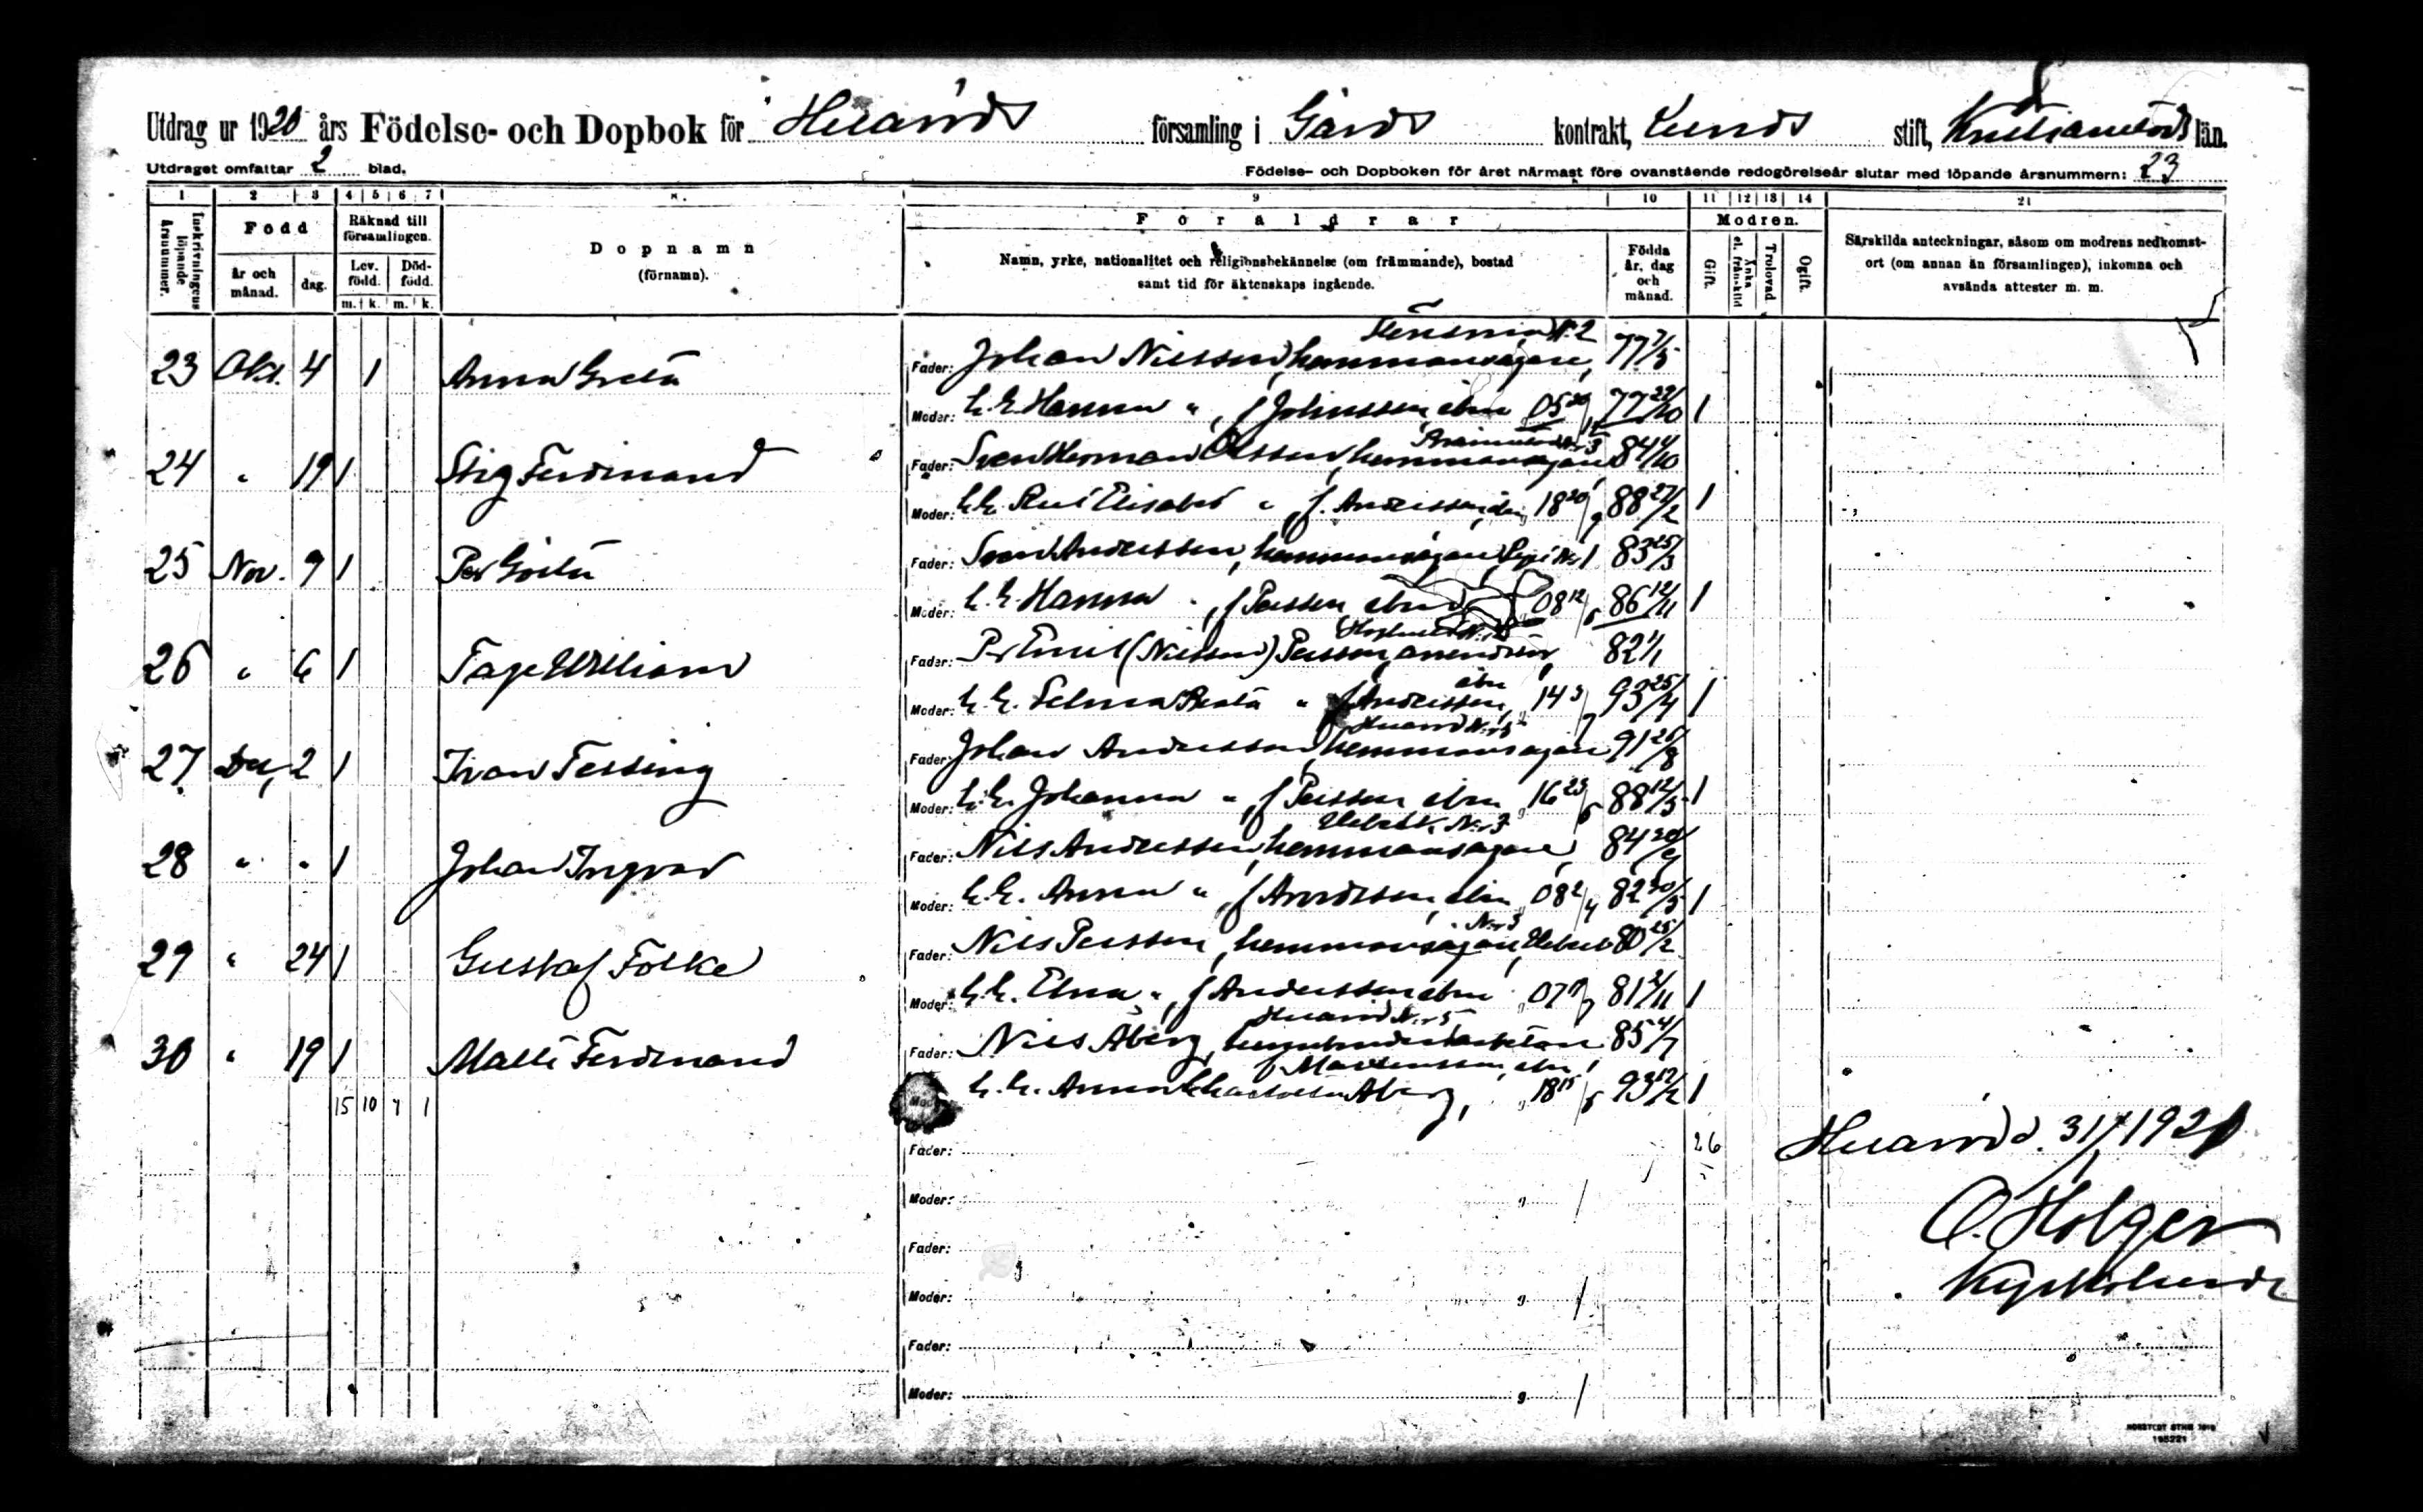 Utdrag ur 1920 års Födelse- och Dopbok för Huaröds församling i Gärds kontrakt, Lunds stift, Kristianstads län.
Utdraget omfattar 2 blad. Födelse- och Dopboken för året närmast före ovanstående redogörelseår slutar med löpande årsnummern: 23
1 2 3 4 5 6 7 8. 9 10 11 12 13 14 21
Inskrivningens löpande årsnummer.
Född
år och månad.
dag.
Räknad till församlingen.
Lev. född.
Död-född.
m. k. m. k.
Dopnamn
(förnamn).
Föräldrar
Namn, yrke, nationalitet och religionsbekännelse (om främmande), bostad
samt tid för äktenskaps ingående.
Födda år, dag och månad.
Modren.
Gift.
Änka el. frånskild
Trolovad
Ogift.
Särskilda anteckningar, såsom om modrens nedkomst-
ort (om annan än församlingen), inkomna och
avsända attester m. m.
Nr 2
23 Okt. 4 1 Anna Greta Fader: Johan Nilsson, hemmansägare, 77 7/5
Moder: h. h. Hanna " , f. Johnsson, ibm 05 77 29/10 1
Nr 3
24 " 19 1 Stig Ferdinand Fader: Sven Herman Olsson, hemmansägare 84 4/10
Moder: h. h. Rut Elisabet " , f. Andersson, ibm 18 20/9 88 27/2 1
25 Nov. 9 1 Per Gösta Fader: Sven Andersson, hemmansägare, Nr 1 83 25/3
Moder: h. h. Hanna " , f. Persson, ibm 08 12/6 86 12/11 1
26 " 6 1 Tage William Fader: Pr Emil (Nilsson) Persson, arrendator, 82 1/1
ibm
Moder: h. h. Selma Beata " f. Andersson, 14 3/7 93 25/4 1
Huaröd Nr 5
27 Dec. 2 1 Ivan Tessing Fader: Johan Andersson, hemmansägare 91 26/8
Moder: h. h. Johanna " , f. Persson ibm 16 23/6 88 12/5 1
Nr 3
28 " " 1 Johan Ingvar Fader: Nils Andersson, hemmansägare, 84 20/9
Moder: h. h. Anna " , f. Andersson, ibm 08 2/4 82 30/5 1
Nr 3
29 " 24 1 Gustaf Folke Fader: Nils Persson, hemmansägare, 80 25/2
Moder: h. h. Elna " , f. Andersson ibm 07 81 2/11 1
Huaröd Nr 5
30 " 19 1 Malte Ferdinand Fader: Nils Åberg, 85 4/7
f. Mårtensson, ibm
h. h. Anna Åberg, 18 15/5 93 12/2 1
15 10 1
Fader: 26 Huaröd d. 31/1 1921
Moder: g
O. Holger
Fader:
Kyrkoherde
Moder: g
Fader:
Moder: g